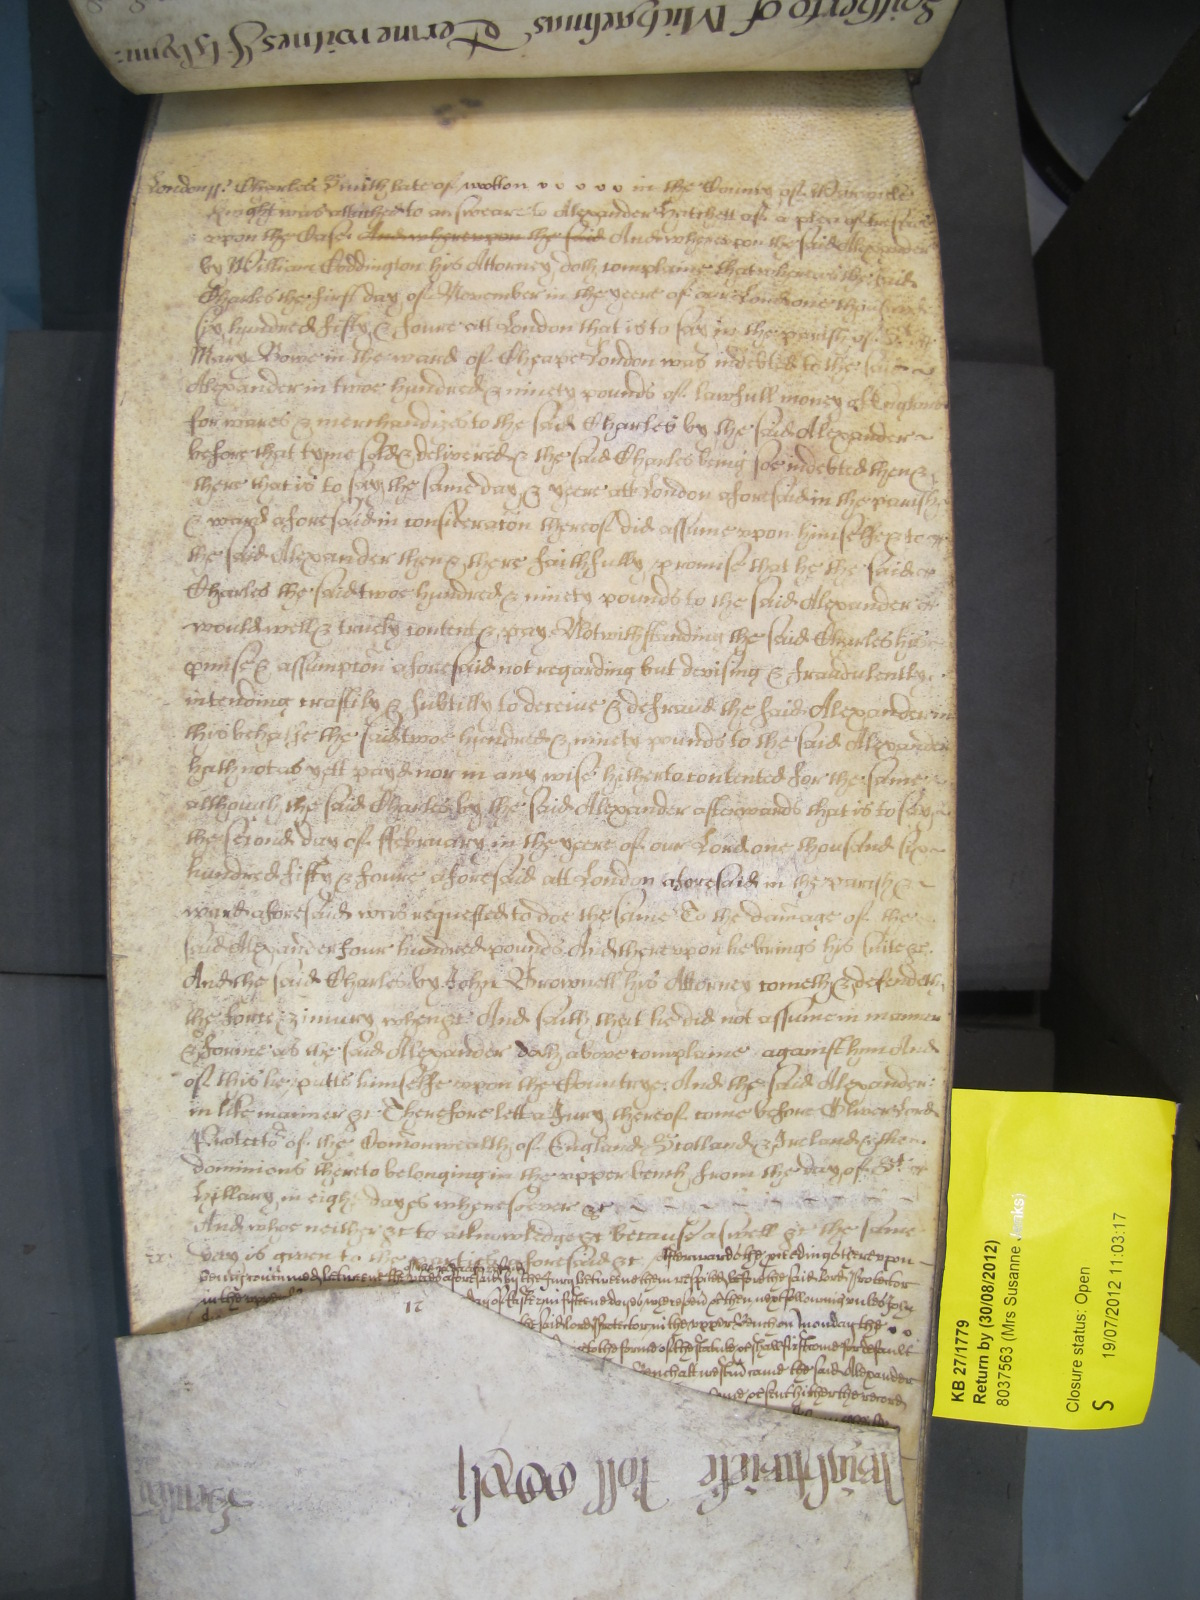 Michaelmas Terme witnes
London ss. Charles Smith late of wotton in the County of Warwicke
knight was attached to answeare to Alexander Hatchett of a plea of trespas
upon the Case. And whereupon the said And whereupon the said Alexander
by William Boddington his Attorney doth complaine that whereas the said
Charles the first day of November in the yeere of our Lord one thousande
six hundred fifty & foure att London that is to say in the parish of St
Mary Bowe in the ward of Cheape London was indebted to the said
Alexander in twoe hundred & ninety pounds of lawfull money of England
for wares & merchandizes to the said Charles by the said Alexander
before that tyme sold & delivered & the said Charles being soe indebted then &
there that is to say the same day & yeere att London aforesaid in the parish
& ward aforesaid in consideracon thereof did assume upon himselfe & to
the said Alexander then & there faithfully promise that he the said
Charles the said twoe hundred & ninety pounds to the said Alexander
would well & truely content & pay Notwithstanding the said Charles his
pmise & assumpton aforesaid not regarding but devising & fraudulently
intending craftily & subtilly to deceive & defraud the said Alexander in
this behalfe the said twoe hundred & ninety pounds to the said Alexander
hath not as yett payd nor in any wise hitherto contented for the same
although the said Charles by the said Alexander afterwards that is to say
the second day of ffebruary in the yeere of our Lord one thousand six
hundred fifty & foure aforesaid att London aforesaid in the parish &
ward aforesaid was requested to doe the same To the damage of the
said Alexander four hundred pounds And thereupon he brings his suite &c.
And the said Charles by John Brownell his Attorney cometh & defendeth
the force & iniury when &c And saith that he did not assume in manner
& forme as the said Alexander doth above complaine against him And
of this he putts himselfe upon the Countrye. And the said Alexander
in like manner &c Therefore lett a Jury thereof come before Oliver Lord
Protector of the Comonwealth of England Scotland & Ireland & the
dominions thereto belonging in the upper bench from the day of St
Hillary in eight dayes wheresoever &c
And whoe neither &c to acknowledge &c because aswell &c the same
day is given to the parties aforesaid &c Afterwards the pceedings thereupon
being continued betweene the parties aforesaid by the Jury betweene them respited before the said Lord Protector
in the upper day of Easter in fifteene dayes wheresoever & then next following unles
17 the said Lord Protector in the upper Bench on Monday the
to the forme of the statute &c shall first come for default
Bench att westm came the said Alexander
sent hither the record
roll
KB 27/1779
Return by (30/08/2012)
8037563 (Mrs Susanne Jenks)
Closure status: Open
S 19/07/2012 11:03:17